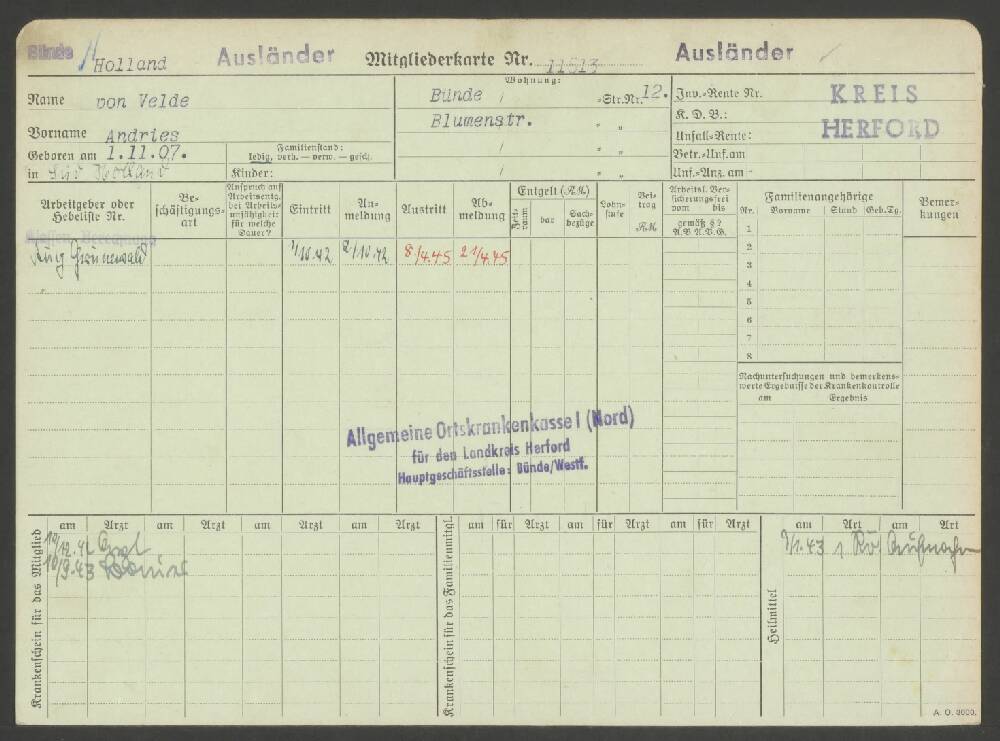 Bünde Holland Ausländer Mitgliederkarte Nr. 11513 Ausländer
Name von Velde
Vorname Andries
Geboren am 1.11.07.
in Süd Holland
Familienstand:
ledig, verh. — verw. — gesch.
Kinder:
Wohnung:
Bünde / Str. Nr. 12.
Blumenstr. " "
/ " "
/ " "
Inv.-Rente Nr.
K. D. B.:
Unfall-Rente:
Betr.-Unf. am
Unf.-Anz. am
KREIS
HERFORD
Arbeitgeber oder Hebeliste Nr.
Beschäftigungsart
Anspruch auf Arbeitsentg. bei Arbeitsunfähigkeit für welche Dauer?
Eintritt
Anmeldung
Austritt
Abmeldung
Entgelt (RM)
Zeitraum
bar
Sachbezüge
Lohnstufe
Beitrag RM
Arbeitsl. Versicherungsfrei vom bis
gemäß § ?
A. V. A. V. G.
Familienangehörige
Nr. Vorname Stand Geb.Tg.
1
2
3
4
5
6
7
8
Bemerkungen
Grünewald 1/10.42 2/10.42 8/4.45 21/4.45
"
Nachuntersuchungen und bemerkenswerte Ergebnisse der Krankenkontrolle
am Ergebnis
Allgemeine Ortskrankenkasse I (Nord)
für den Landkreis Herford
Hauptgeschäftsstelle: Bünde/Westf.
Krankenschein für das Mitglied
am Arzt am Arzt am Arzt am Arzt
10/9.43
Krankenschein für das Familienmitgl.
am für Arzt am für Arzt am für Arzt
Heilmittel
am Art am Art
9/1.43 1 Rö Aufnahme
A. O. 3000.